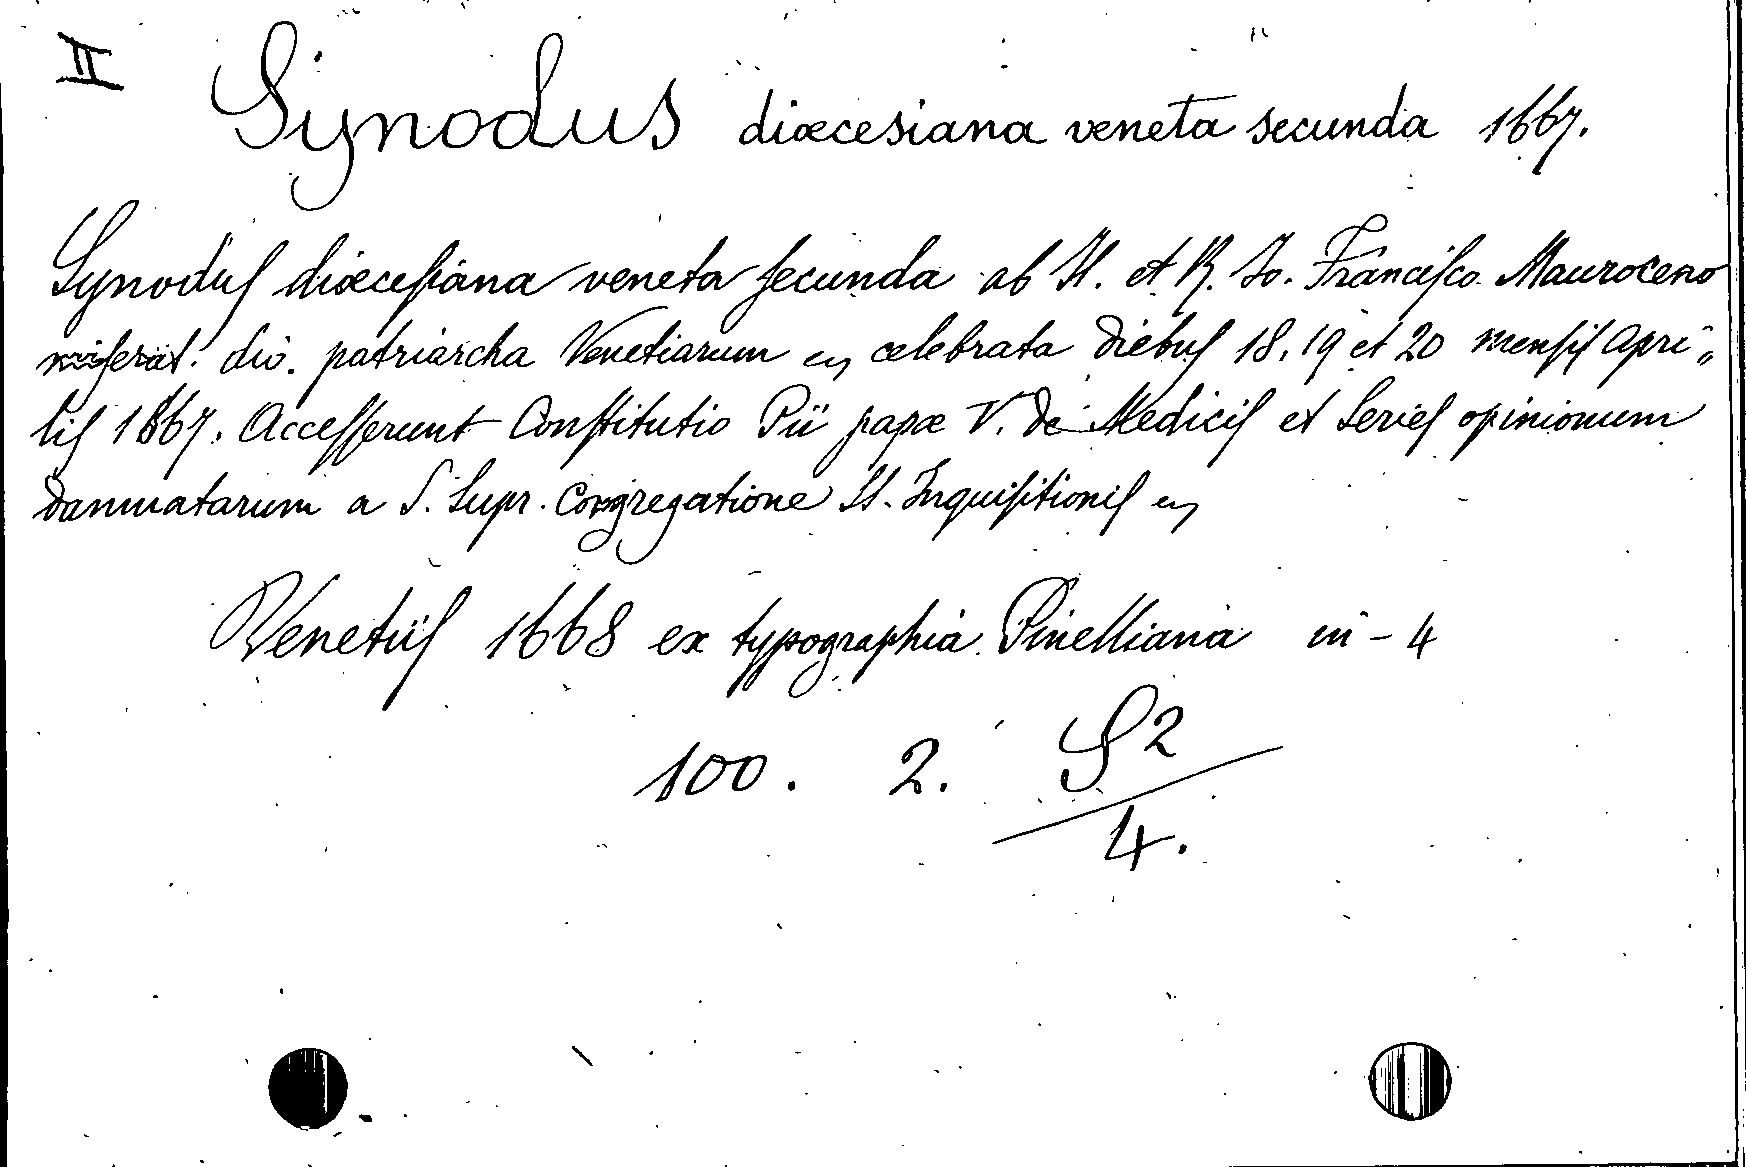 II
Synodus diœcesiana veneta secunda 1667.
Synodus diœcesiana veneta secunda ab Il. et R. Jo. Francisco Mauroceno
miserat. div. patriarcha Venetiarum celebrata diebus 18, 19 et 20 mensis Apri„
lis 1667. Accesserunt Constitutio Pii papæ V. de Medicis et Series opinionum
damnatarum a S. Supr. Congregatione SS. Inquisitionis
Venetiis 1668 ex typographia Pinelliana in-4
100. 2. S2
4.